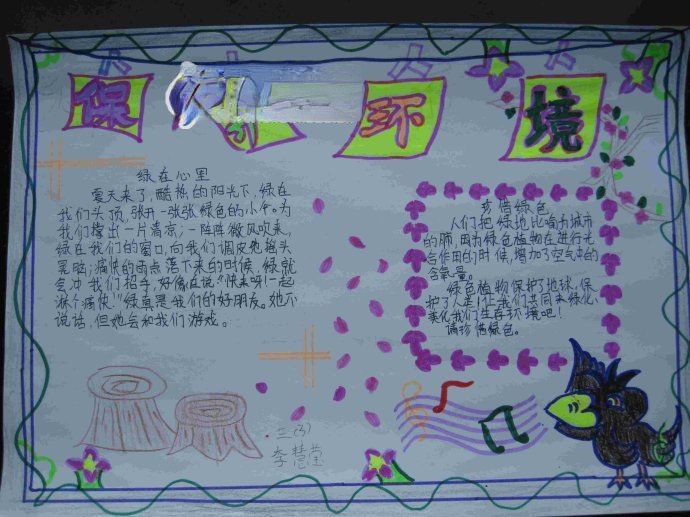 保 环境
绿在心里
夏天来了,酷热的阳光下,绿在
我们头顶,张开一张张绿色的小伞。为
我们撑出一片清凉;一阵阵微风吹来,
绿在我们的窗口,向我们调皮地摇头
晃脑;痛快的雨点落下来的时候,绿就
会冲我们招手,好像在说:“快来呀!一起
淋个痛快!”绿真是我们的好朋友。她不
说话,但她会和我们游戏。
珍惜绿色
人们把绿地比喻为城市
的肺,因为绿色植物在进行光
合作用的时候,增加了空气中的
含氧量。
绿色植物保护了地球,保
护了人类!让我们共同来绿化、
美化我们生存环境吧!
请珍惜绿色。
三(3)
李慧莹